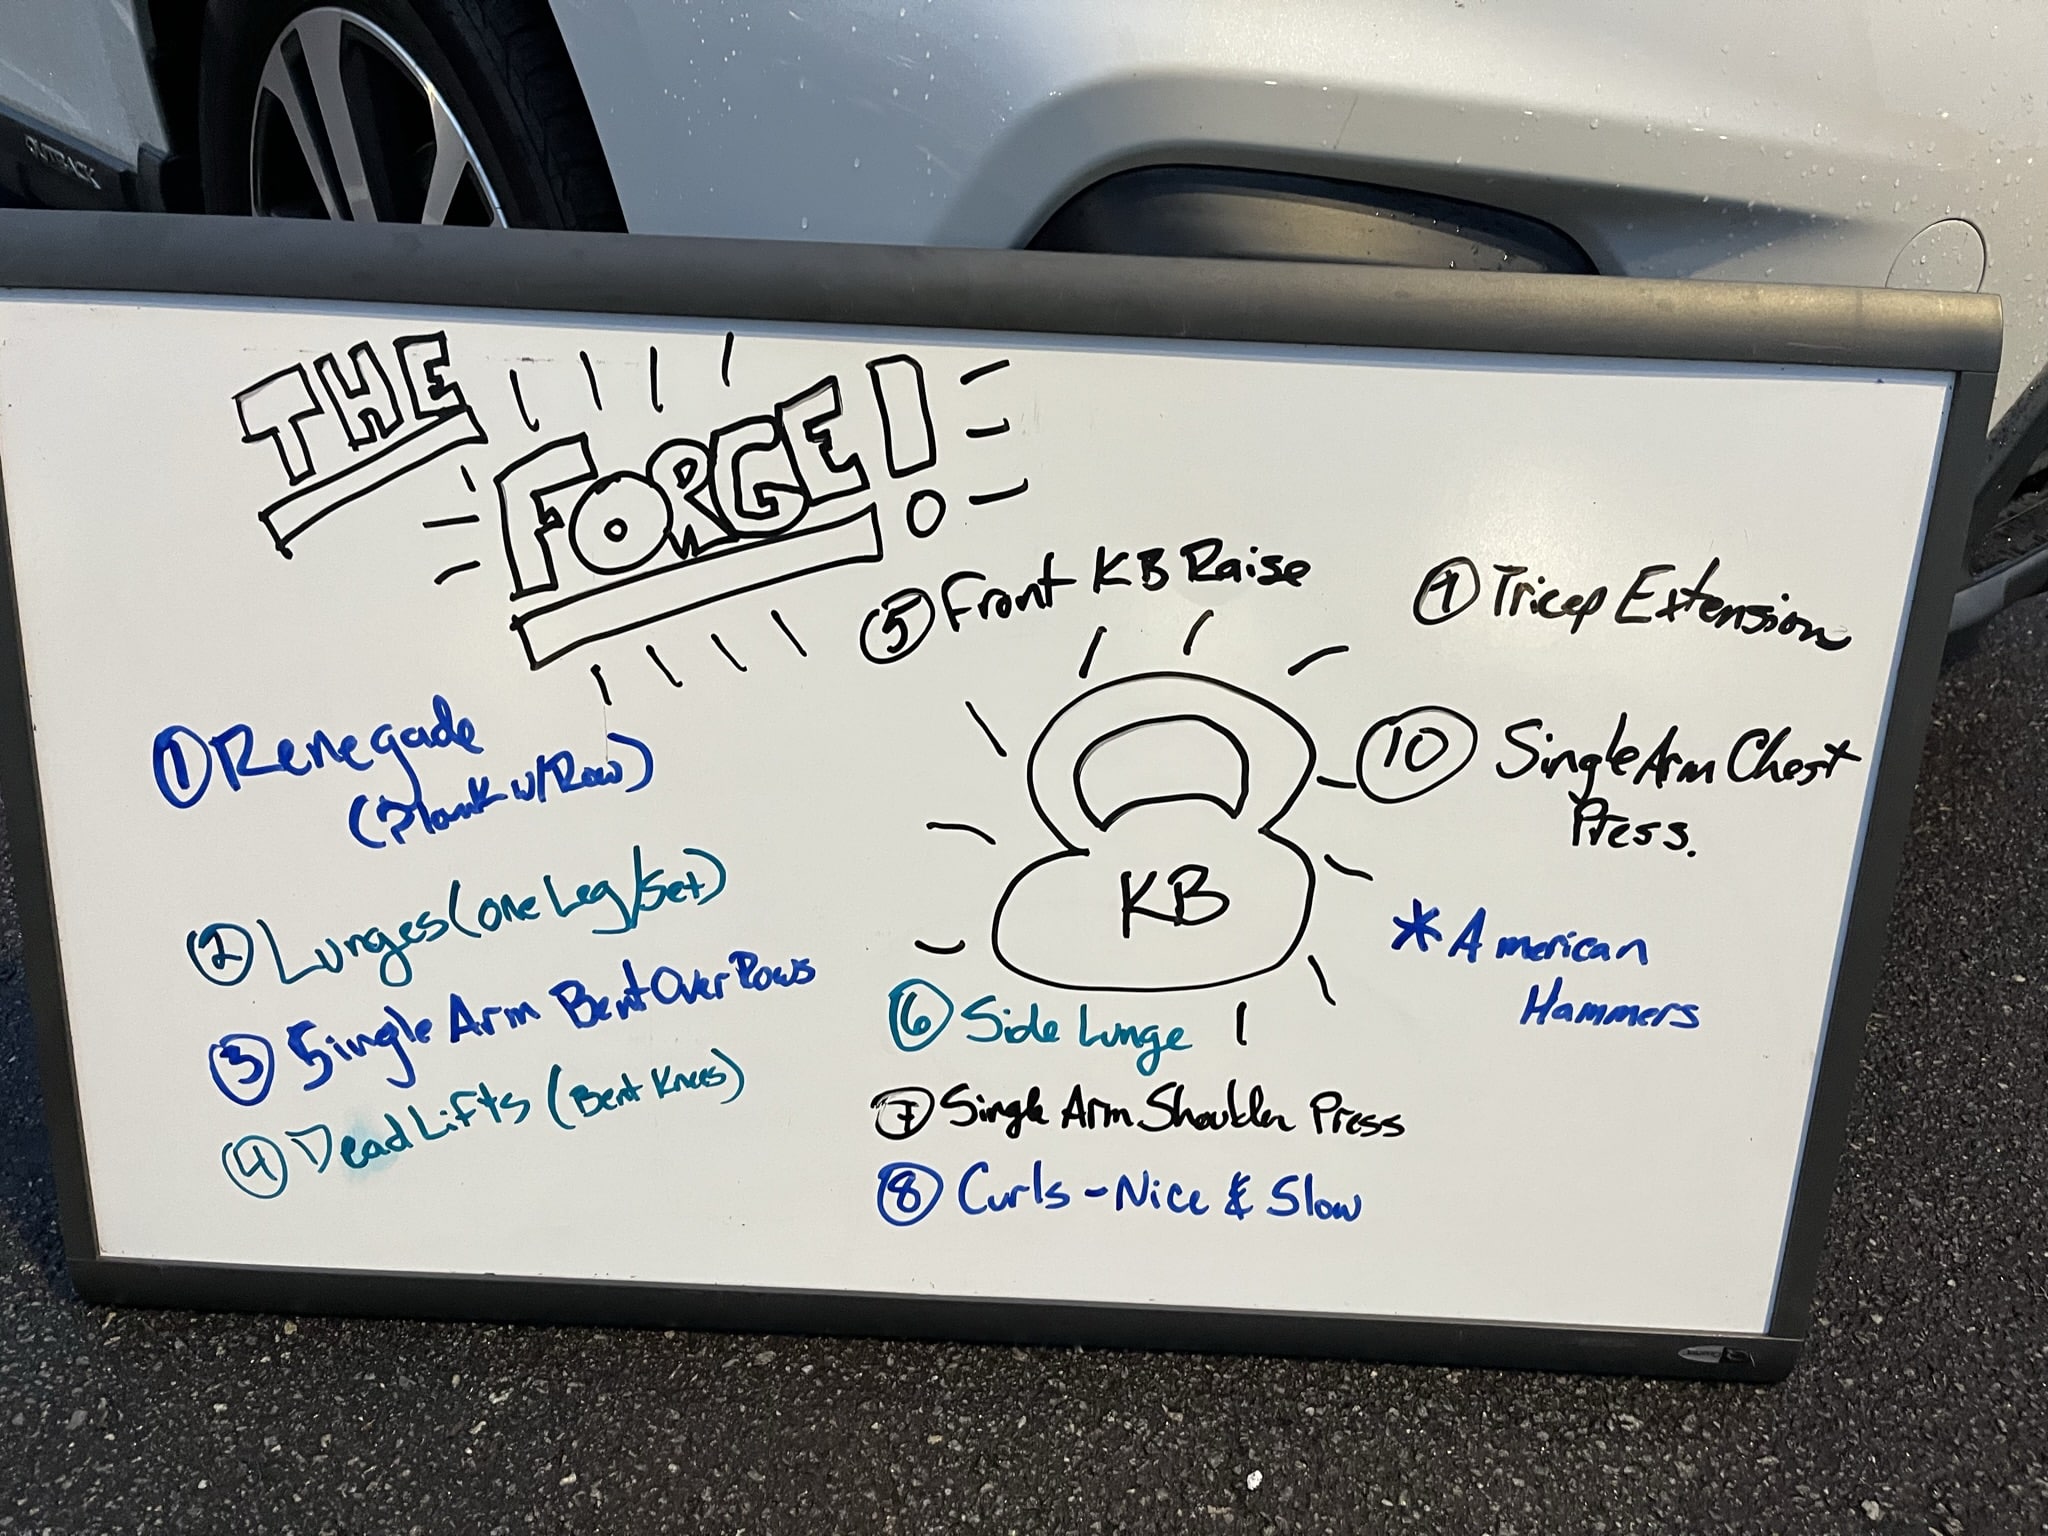 OUTBACK
THE
FORGE!
① Renegade
(Plank w/Row)
② Lunges (one Leg/Set)
③ Single Arm Bent Over Rows
④ Dead Lifts (Bent Knees)
⑤ Front KB Raise
KB
⑥ Side Lunge
⑦ Single Arm Shoulder Press
⑧ Curls - Nice & Slow
⑨ Tricep Extension
⑩ Single Arm Chest
Press.
* American
Hammers